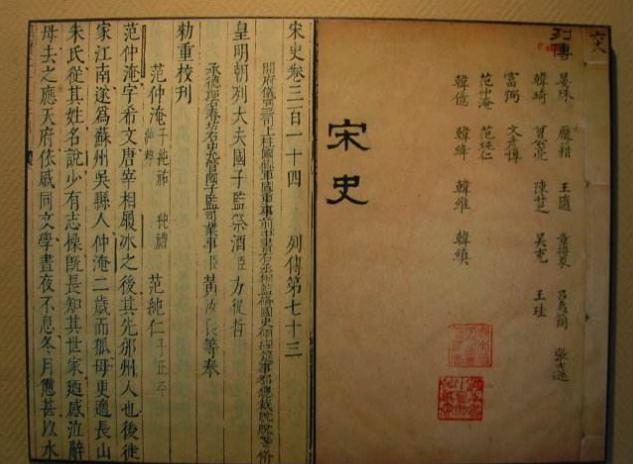 宋史
列傳
晏殊 龐籍 王隨 章得象 呂夷簡 張士遜
韓琦 曾公亮 陳升之 吳充 王珪
富弼 文彥博
范仲淹 范純仁
韓億 韓絳 韓維 韓縝
宋史卷三百一十四 列傳第七十三
開府儀同三司上柱國錄軍國重事前中書右丞相監修國史領經筵事都總裁
皇明朝列大夫國子監祭酒臣方從哲
承德郎右春坊右中允管國子監司業事臣黃汝良等奉
勅重校刊
范仲淹子純祐 純禮 范純仁子正平
范仲淹字希文唐宰相履冰之後其先邠州人也後徙
家江南遂爲蘇州吳縣人仲淹二歲而孤母更適長山
朱氏從其姓名說少有志操旣長知其世家廼感泣辭
母去之應天府依戚同文學晝夜不息冬月憊甚以水